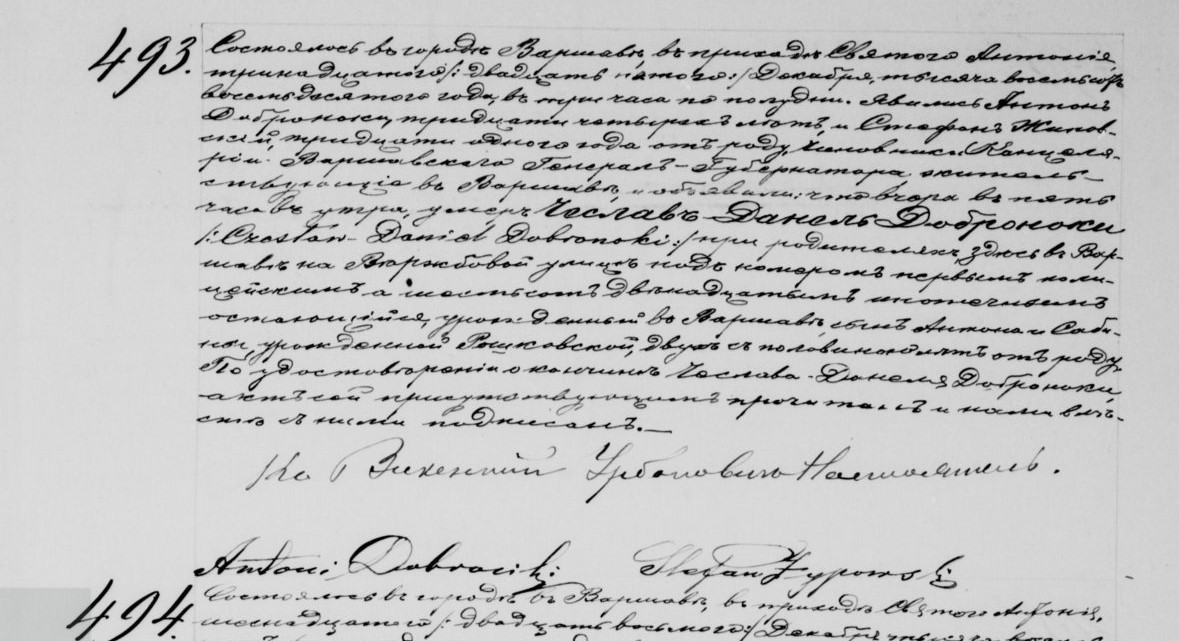 493.
Состоялось въ городѣ Варшавѣ, въ приходѣ Святого Антонія,
тринадцатого /: двадцать пятого :/ Декабря, тысяча восемьсотъ
восемьдесятого года, въ три часа по полудни. Явились Антонъ
Доброноки, тридцати четырехъ лѣтъ, и Стефанъ Жипов-
скій, тридцати одного года отъ роду, чиновники Канцеля-
ріи Варшавского Генералъ-Губернатора, житель-
ствующіе въ Варшавѣ, и объявили, что вчера въ пять
часовъ утра, умеръ Чеславъ-Данель Доброноки
/: Czesław-Daniel Dobronoki :/ при родителяхъ, здѣсь въ Вар-
шавѣ на Вержбовой улицѣ подъ номеромъ первымъ поли-
цейскимъ а шестьсотъ двѣнадцатымъ ипотечнымъ
остающійся, урожденный въ Варшавѣ, сынъ Антона и Саби-
ны, урожденной Рошковской, двухъ съ половиною лѣтъ отъ роду.
По удостовѣреніи о кончинѣ Чеслава-Данеля Доброноки,
актъ сей присутствующимъ прочитанъ и нами вмѣ-
стѣ съ ними подписанъ.—
Кс Викентий Урбановичъ Настоятель.
Antoni Dobronoki Stefan Żypowski
494.
Состоялось въ городѣ Варшавѣ, въ приходѣ Святого Антонія,
шестнадцатого /: двадцать восьмого :/ Декабря, тысяча